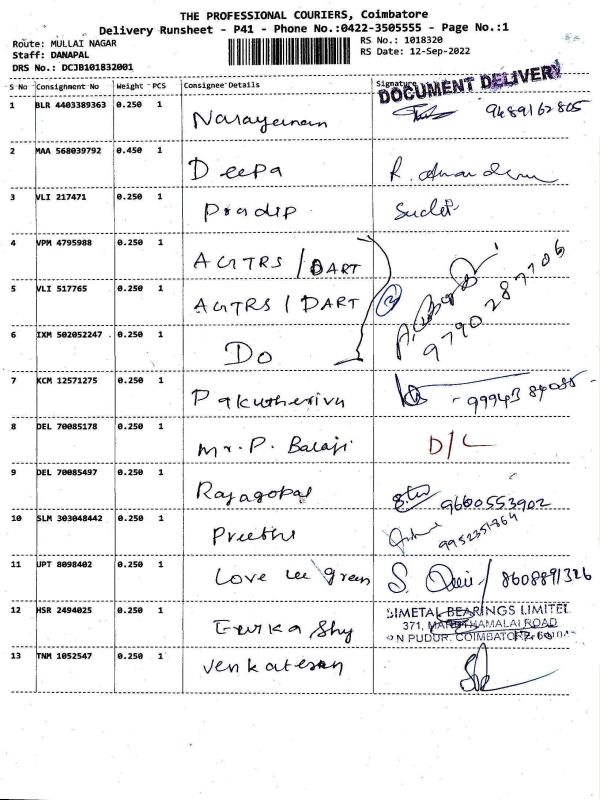 THE PROFESSIONAL COURIERS, Coimbatore
Delivery Runsheet - P41 - Phone No.:0422-3505555 - Page No.:1
Route: MULLAI NAGAR
RS No.: 1018320
Staff: DANAPAL
RS Date: 12-Sep-2022
DRS No.: DCJB101832001
S No Consignment No Weight PCS Consignee Details Signature
DOCUMENT DELIVERY
1 BLR 4403389363 0.250 1 Narayanan 9489162805
2 MAA 568039792 0.450 1 Deepa
3 VLI 217471 0.250 1 Pradip
4 VPM 4795988 0.250 1 AGTRS / DART
5 VLI 517765 0.250 1 AGTRS / DART 3
9790287706
6 IXM 502052247 0.250 1 Do
7 KCM 12571275 0.250 1
8 DEL 70085178 0.250 1 Mr. P. Balaji D/L
9 DEL 70085497 0.250 1 Rajagopal 9600553902
10 SLM 303048442 0.250 1 Preethi 9952351864
11 UPT 8098402 0.250 1 Love lee green 8608891326
12 HSR 2494025 0.250 1
BIMETAL BEARINGS LIMITED
371, MARUTHAMALAI ROAD
PN PUDUR, COIMBATORE
13 TNM 1052547 0.250 1 Venkatesan